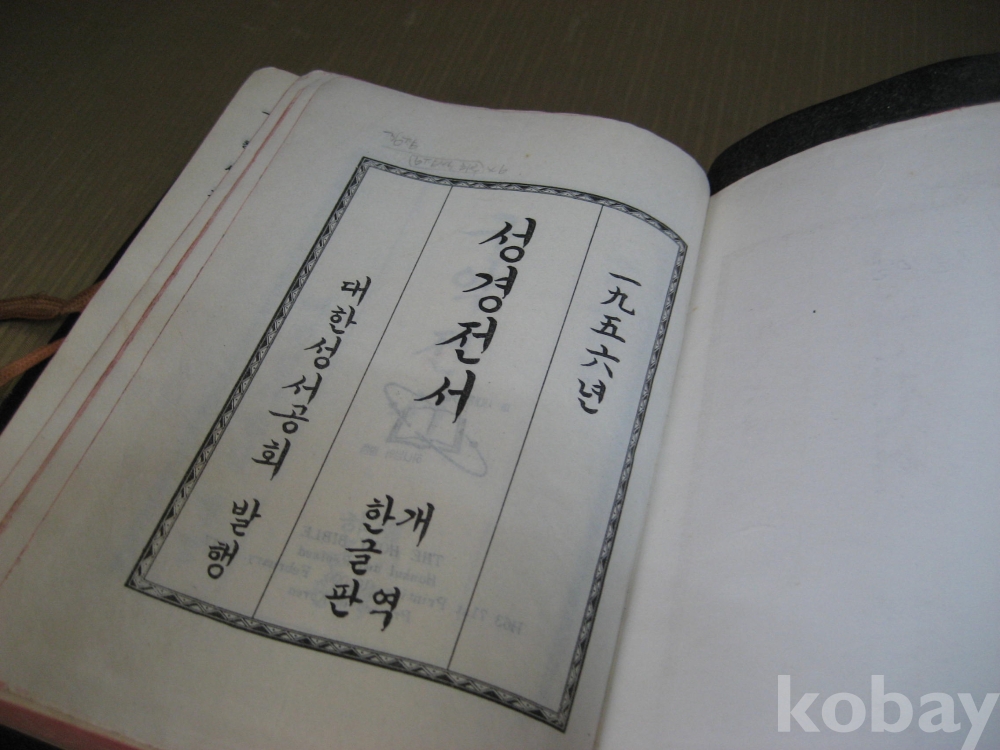 一九五六년
성경전서
개역
한글판
대한성서공회 발행
THE HO BIBLE
kobay